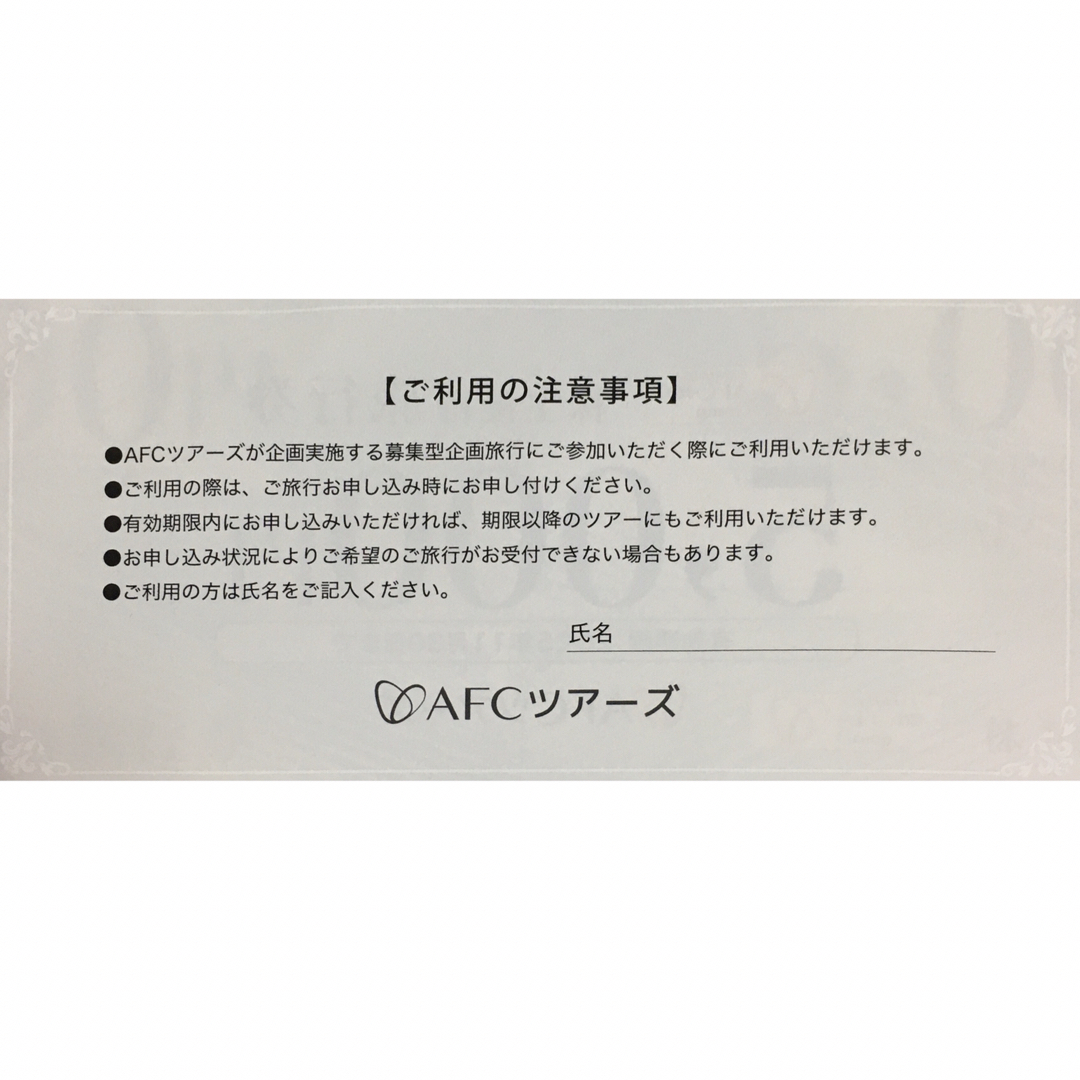 【ご利用の注意事項】
●AFCツアーズが企画実施する募集型企画旅行にご参加いただく際にご利用いただけます。
●ご利用の際は、ご旅行お申し込み時にお申し付けください。
●有効期限内にお申し込みいただければ、期限以降のツアーにもご利用いただけます。
●お申し込み状況によりご希望のご旅行がお受付できない場合もあります。
●ご利用の方は氏名をご記入ください。
氏名
AFCツアーズ